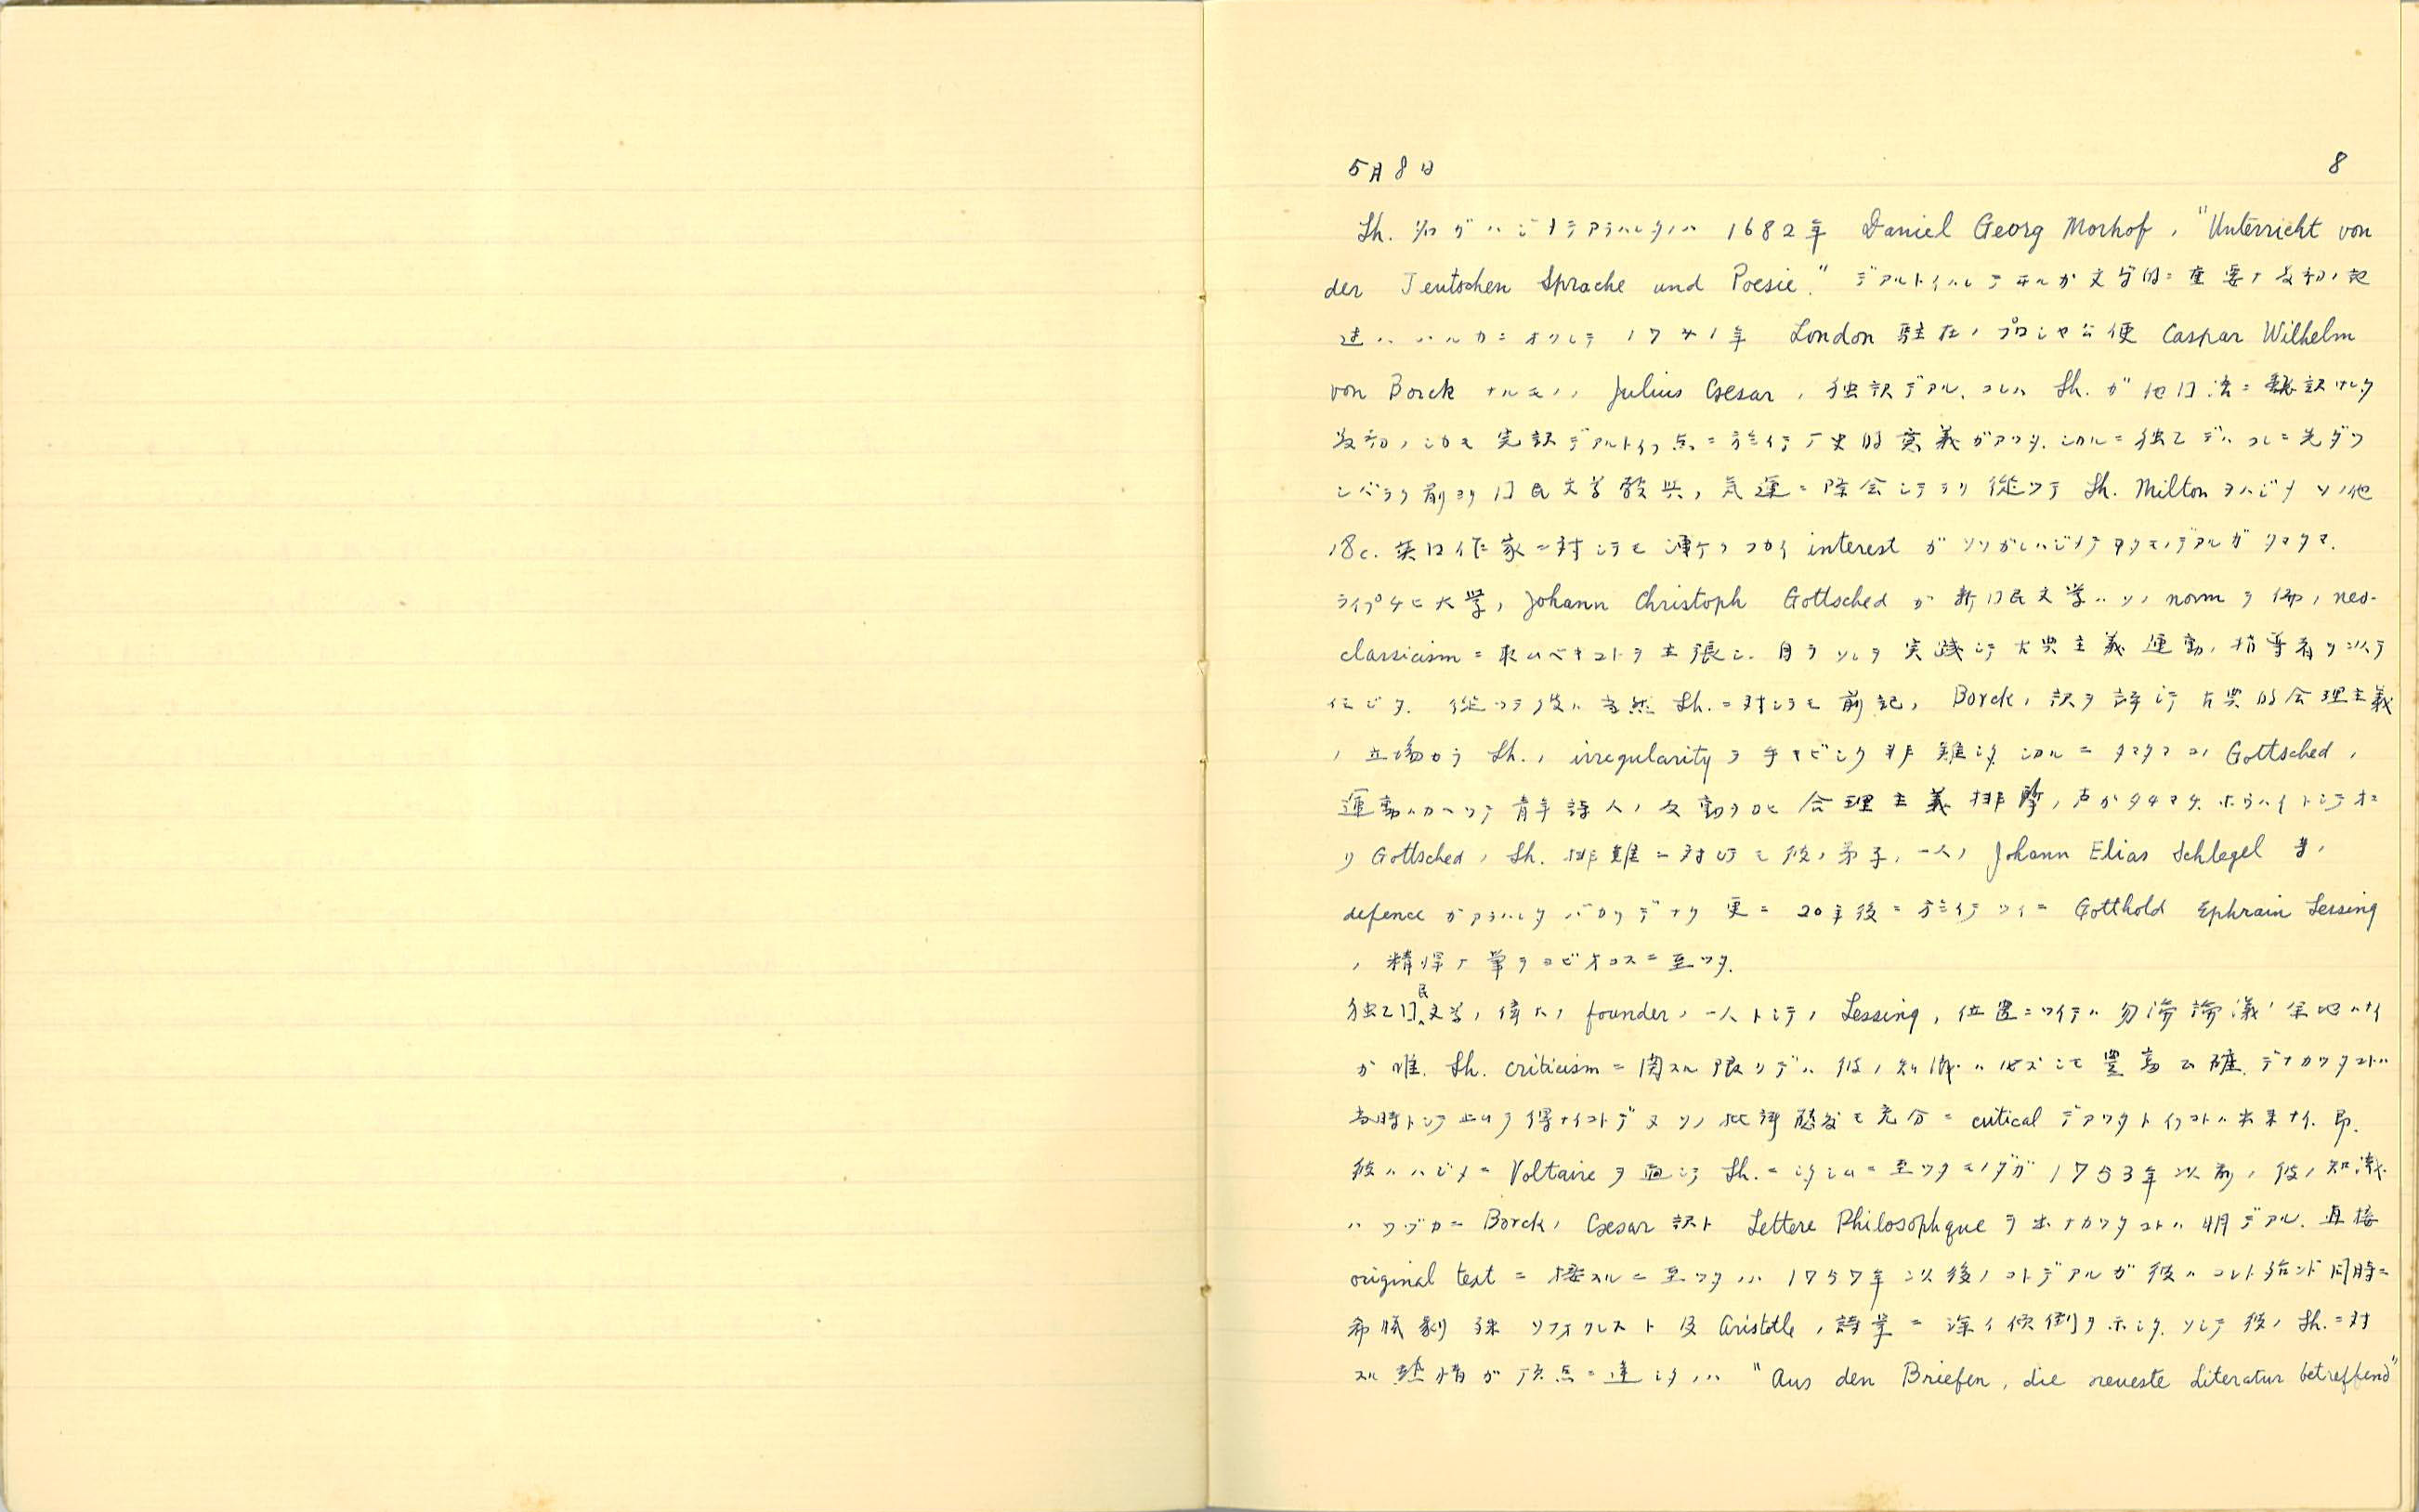 5月8日
8
Sh. ノ名ガハジメテアラハレタノハ 1682年 Daniel Georg Morhof, "Unterricht von
der Teutschen Sprache und Poesie." デアルトイハレテヰルガ文学的ニ重要ナ最初ノ記
述ハハルカニオクレテ 1741年 London 駐在ノプロシヤ公使 Caspar Wilhelm
von Borck ナルモノノ Julius Cæsar ノ独訳デアル. コレハ Sh. ガ他口語ニ飜訳サレタ
最初ノシカモ完訳デアルトイフ点ニ於イテ歴史的意義ガアツタ. シカルニ独乙デハコレニ先ダツ
シバラク前ヨリ口民文学啓興ノ気運ニ際会シテヲリ從ツテ Sh. Milton ヲハジメソノ他
18c. 英口作家ニ対シテモ interest ガソソガレハジメテヰタモノデアルガタマタマ.
ライプチヒ大学ノ Johann Christoph Gottsched ガ新口民文学ハソノ norm ヲ佛ノ neo-
classicism ニ取ルベキコトヲ主張シ. 自ラソレヲ実践シテ古典主義運動ノ指導者ヲ以テ
任ジタ. 從ツテ彼ハ当然 Sh. ニ対シテモ前記ノ Borck ノ訳ヲ評シテ古典的合理主義
ノ立場カラ Sh. ノ irregularity ヲ手キビシク非難シタ シカルニタマタマコノ Gottsched ノ
運動ハカヘツテ青年詩人ノ反動ヲ 合理主義排撃ノ声ガタチマチ ホウハイトシテオコ
リ Gottsched ノ Sh. 排難ニ対シテモ彼ノ弟子ノ一人ノ Johann Elias Schlegel ノ
defence ガアラハレタバカリデナク更ニ 20年後ニ於イテツイニ Gotthold Ephraim Lessing
ノ精悍ナ筆ヲヨビオコスニ至ツタ.
独乙口民文学ノ偉大ノ founder ノ一人トシテノ Lessing ノ位置ニツイテハ勿論論議ノ余地ハナイ
ガ唯. Sh. criticism ニ関スル限リデハ彼ノ知識ハ必ズシモ豊富正確デナカツタコトハ
当時トシテ止ムヲ得ナイコトデソノ批評態度モ充分ニ critical デアツタトイフコトハ出来ナイ. 即.
彼ハハジメニ Voltaire ヲ通シテ Sh. ニシタシムニ至ツタモノダガ 1753年以前ノ彼ノ知識
ハワヅカニ Borck ノ Cæsar 訳ト Lettere Philosophque ヲ出ナカツタコトハ明デアル. 直接
original text ニ接スルニ至ツタノハ 1757年以後ノコトデアルガ彼ハコレト殆ンド同時ニ
希臘劇殊ソフォクレスト及 Aristotle ノ詩学ニ深イ傾倒ヲ示シタ. ソシテ彼ノ Sh. ニ対
スル熱情ガ頂点ニ達シタノハ "Aus den Briefen, die neueste Literatur betreffend"